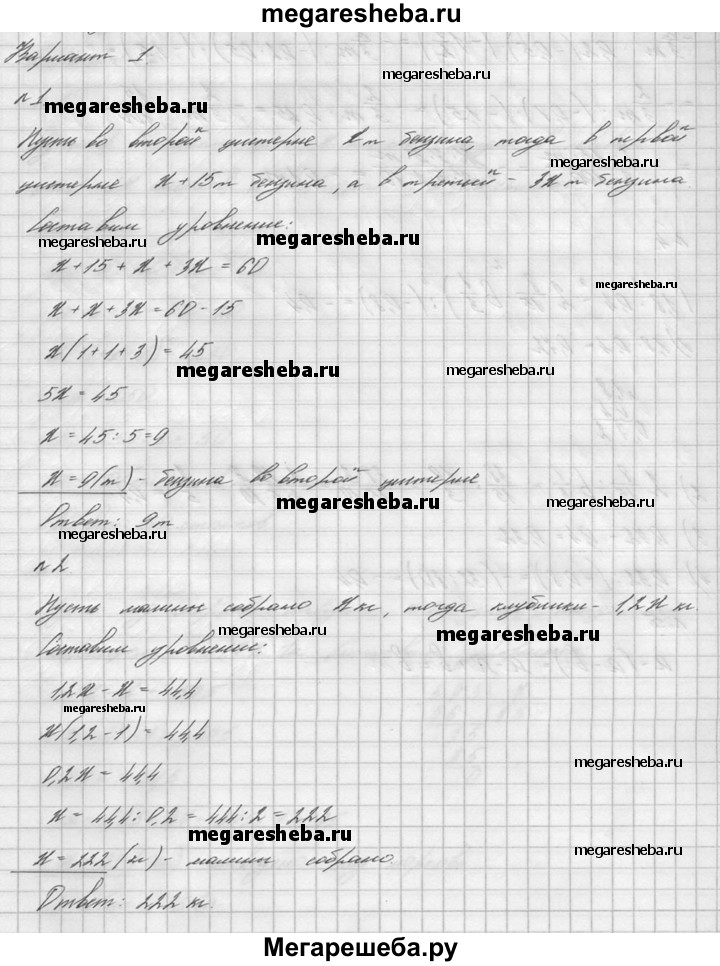 megaresheba.ru
Вариант 1.
megaresheba.ru
n 1
megaresheba.ru
Пусть во второй цистерне x т бензина, тогда в первой
megaresheba.ru
цистерне x+15 т бензина, а в третьей - 3x т бензина.
Составим уровнение:
megaresheba.ru
megaresheba.ru
x + 15 + x + 3x = 60
megaresheba.ru
x + x + 3x = 60 - 15
x(1+1+3) = 45
megaresheba.ru
megaresheba.ru
5x = 45
x = 45 : 5 = 9
x = 9(т) - бензина во второй цистерне
megaresheba.ru
megaresheba.ru
Ответ: 9 т
megaresheba.ru
n 2
Пусть малины собрано x кг, тогда клубники - 1,2x кг.
megaresheba.ru
megaresheba.ru
Составим уровнение:
1,2x - x = 44,4
megaresheba.ru
x(1,2 - 1) = 44,4
megaresheba.ru
0,2x = 44,4
x = 44,4 : 0,2 = 444 : 2 = 222
megaresheba.ru
megaresheba.ru
x = 222 (кг) - малины собрано.
Ответ: 222 кг.
megaresheba.ru
Мегарешеба.ру